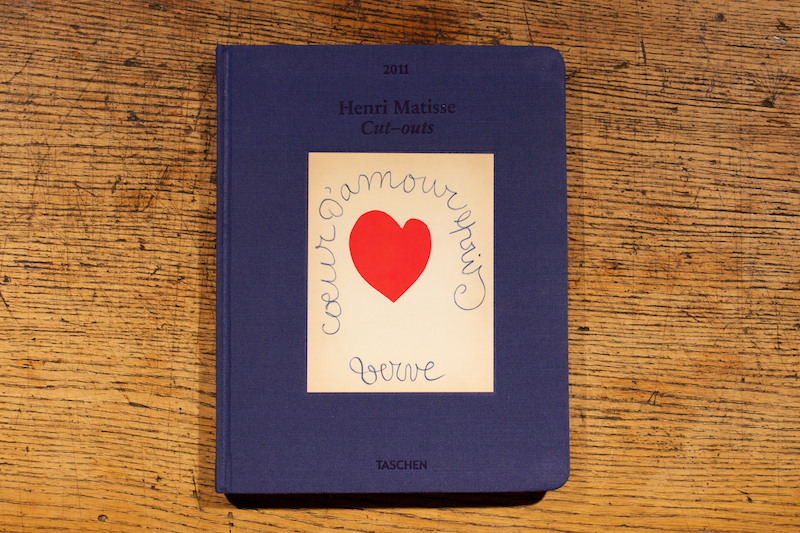 2011
Henri Matisse
Cut-outs
coeur d'amour épris
verve
TASCHEN